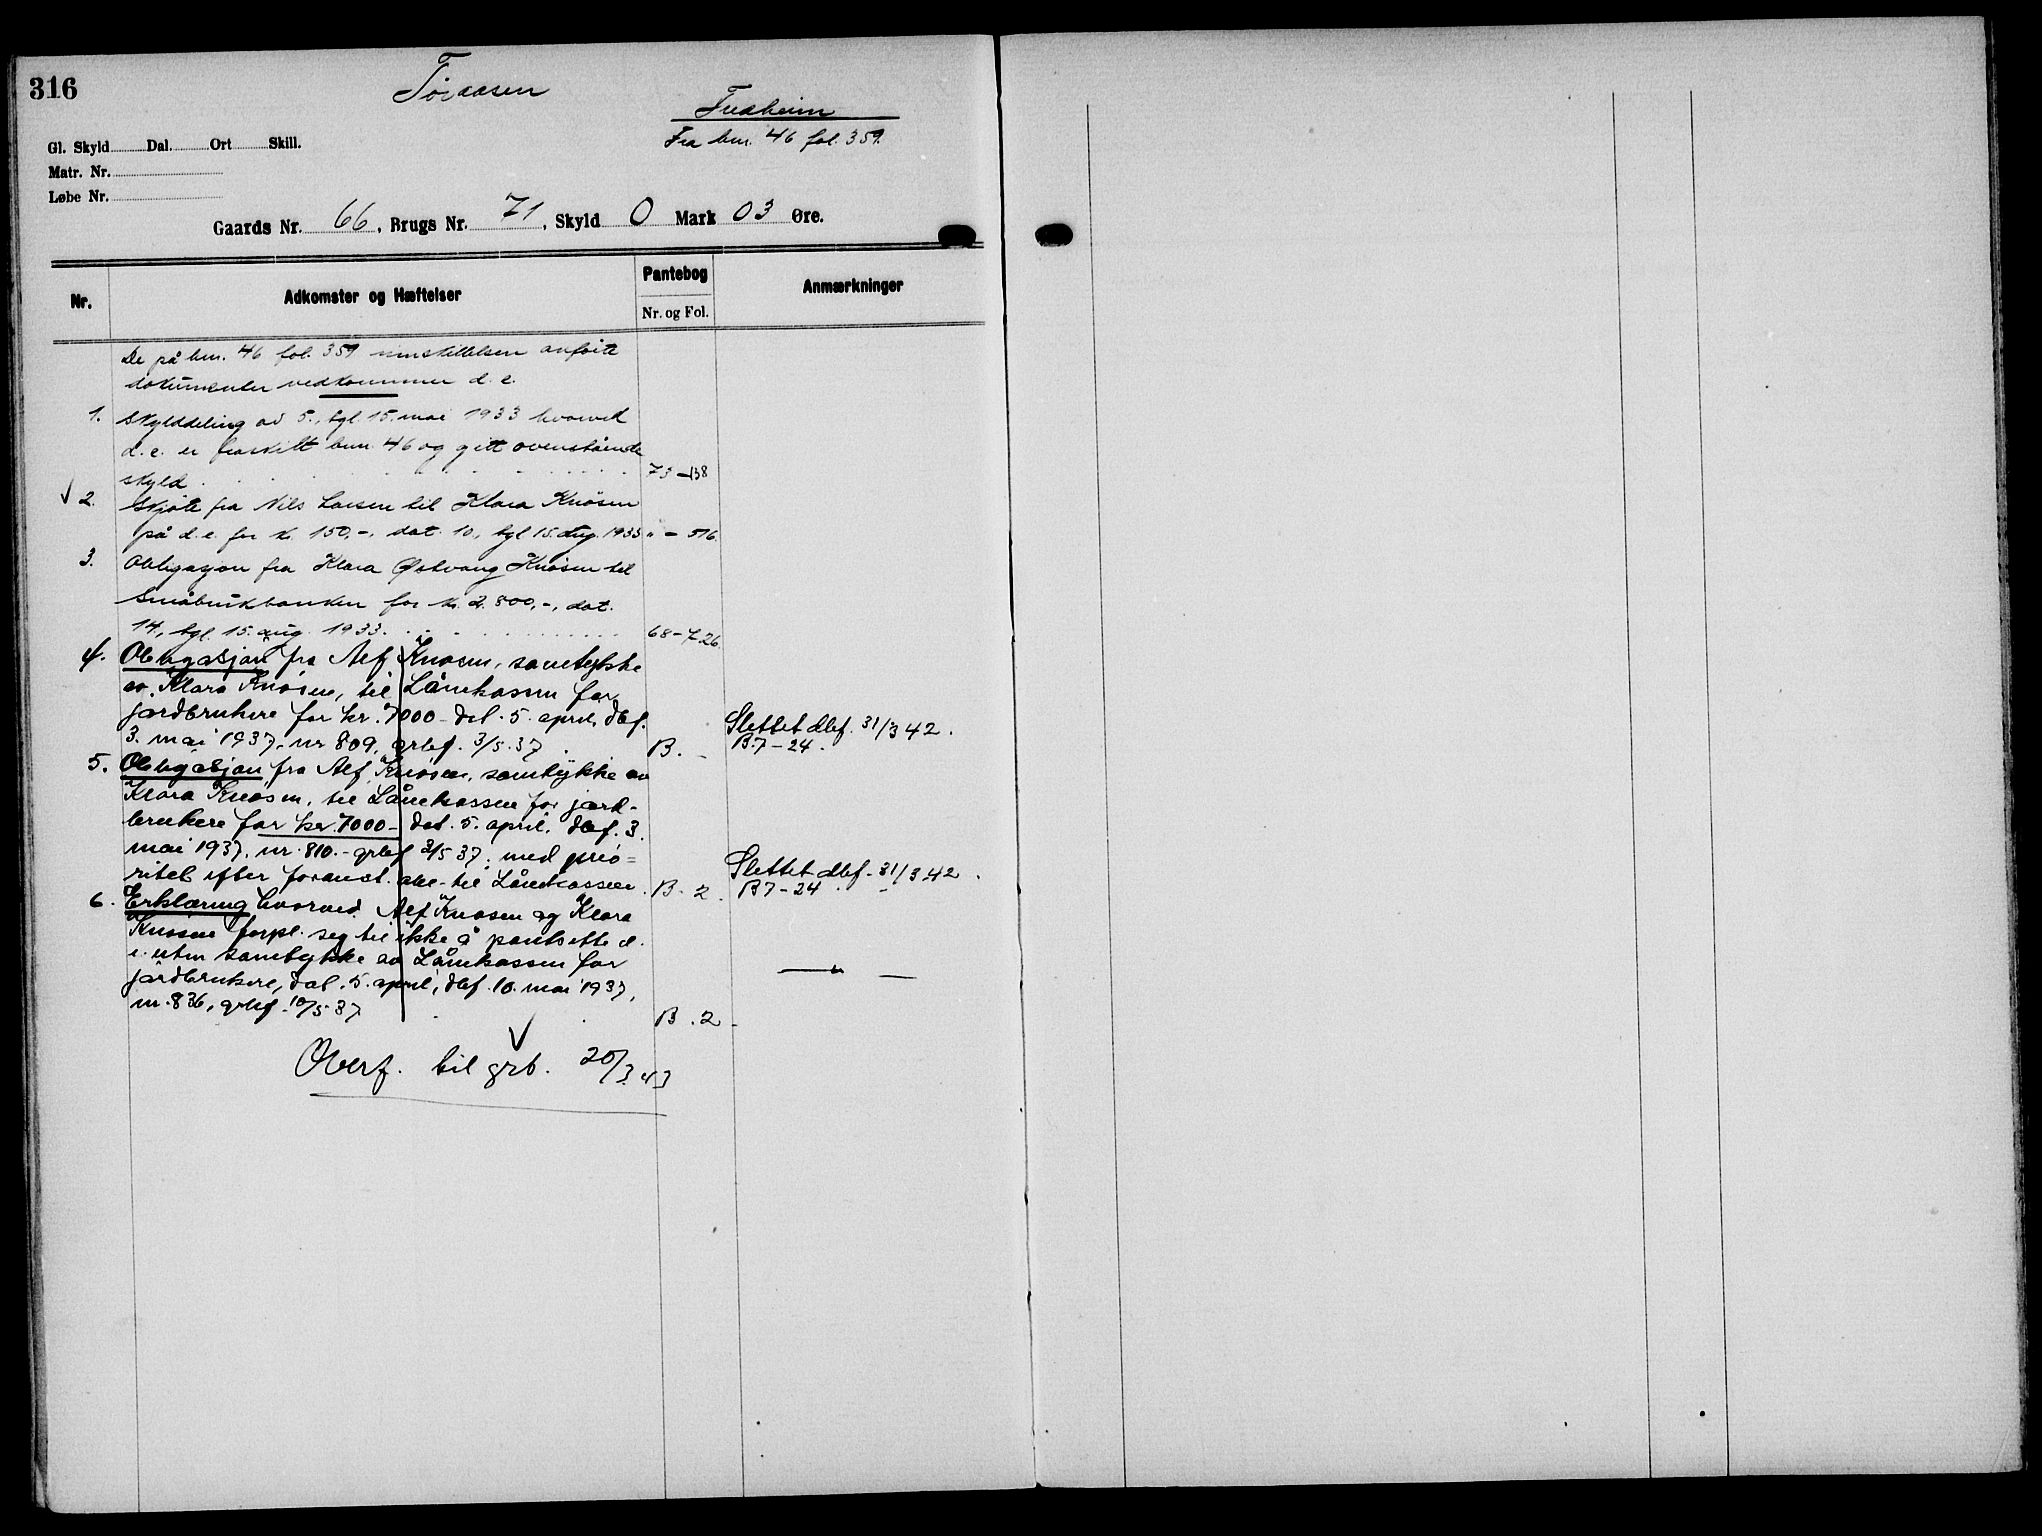 316
Tøråsen
Fredheim
Fra bnr. 46 fol. 359.
Gl. Skyld Dal. Ort Skill.
Matr. Nr.
Løbe Nr.
Gaards Nr. 66, Brugs Nr. 71, Skyld 0 Mark 03 Øre.
Nr. Adkomster og Hæftelser Pantebog Anmærkninger
Nr. og Fol.
De på bnr. 46 fol. 359 innskillelsen anførte
dokumenter vedkommer d. e.
1. Skylddeling av 5., tgl. 15. mai 1933 hvorved
d. e. er fraskilt bnr. 46 og gitt ovenstående
skyld. 73 - 138
2. Skjøte fra Nils Larsen til Klara Knøsen
på d. e. for kr. 150,-, dat. 10., tgl 15. aug. 1933 " - 516.
3. Obligasjon fra Klara Østvang Knøsen til
Småbrukbanken for kr. 2.800,-, dat.
14., tgl. 15. aug. 1933. 68 - 726
4. Obligasjon fra Alf Knøsen, samtykke
av Klara Knøsen, til Lånekassen for
jordbrukere for kr. 7000 - dat. 5. april, dbf.
3. mai 1937, nr 809, grbf. 3/5.37. B. -
Slettet dbf. 31/3 42.
B.7 - 24.
5. Obligasjon fra Alf Knøsen, samtykke av
Klara Knøsen, til Lånekassen for jord-
brukere for kr. 7000 - dat. 5. april. dbf. 3.
mai 1937, nr. 810. - grbf 3/5 37. med prio=
ritet efter foranst. obl. til Lånekassen. B. 2.
Slettet dbf - 31/3 42.
B 7 - 24 -
6. Erklæring hvorved Alf Knøsen og Klara
Knøsen forpl. seg til ikke å pantsette d.
e. uten samtykke av Lånekassen for
jordbrukere, dat. 5. april, dbf. 10. mai 1937,
nr. 836, grbf. 10/5 37. B. 2 -
— " —
Overf. til grb. 20/3 43